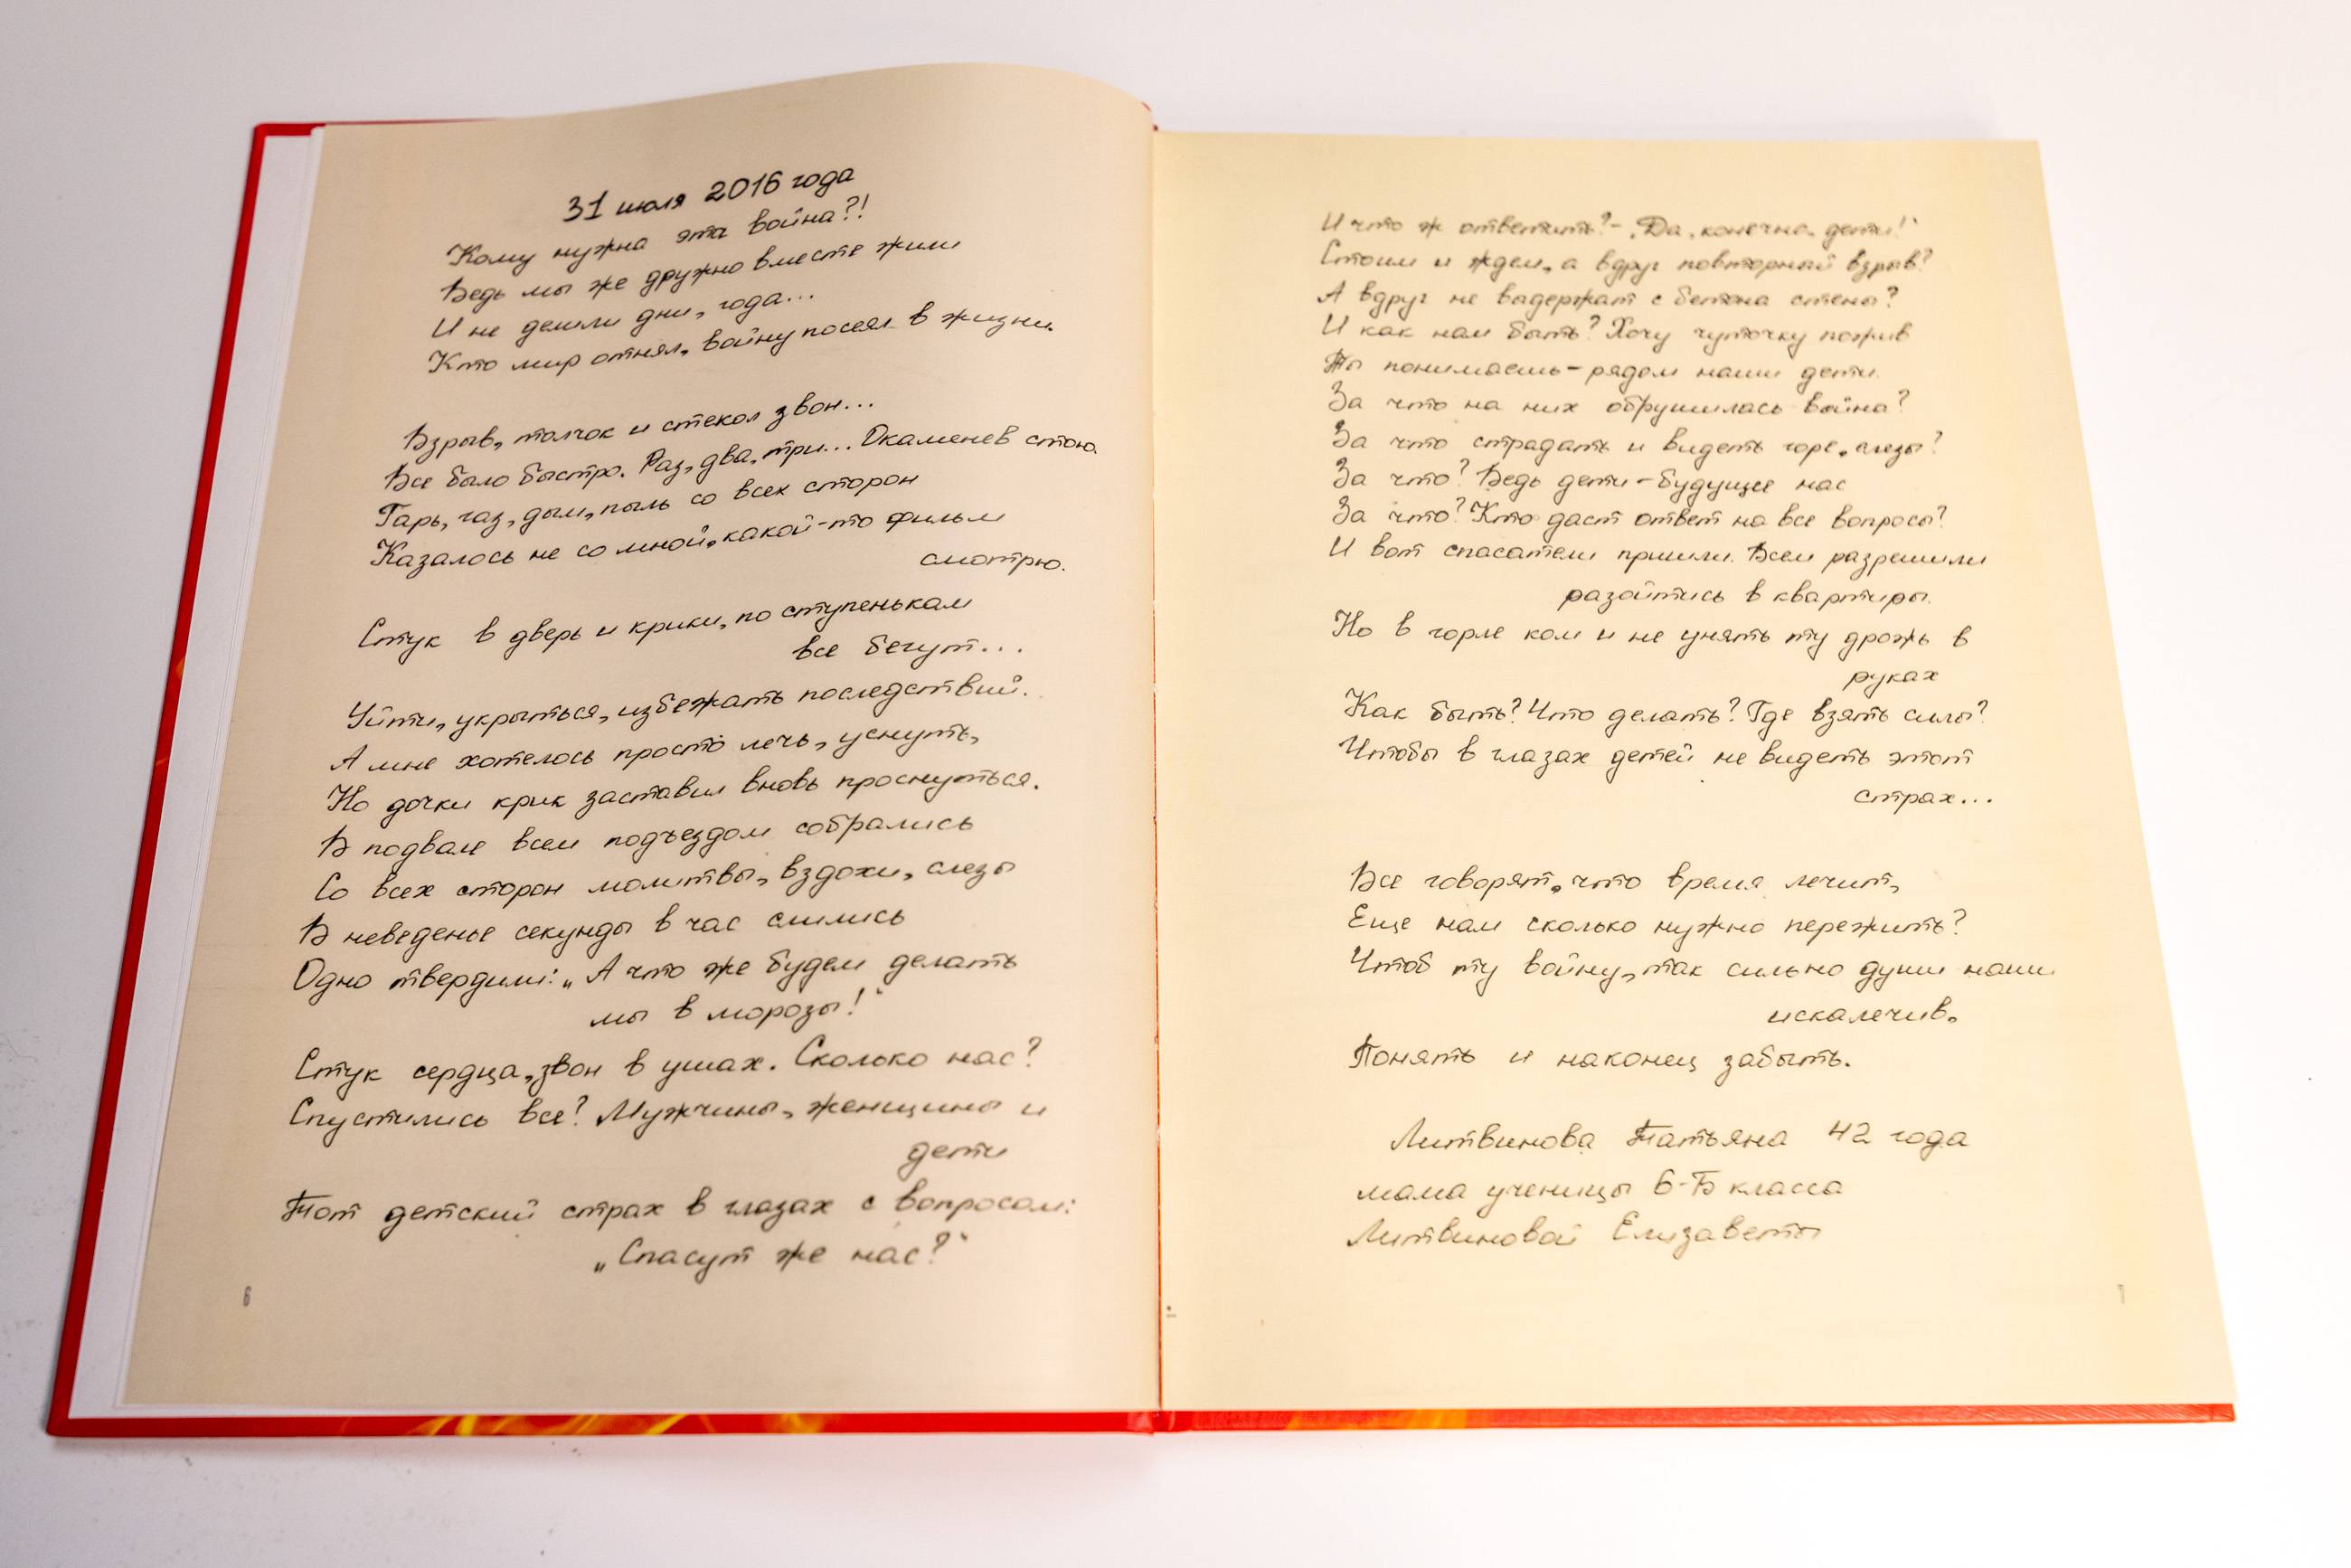 31 июля 2016 года
Кому нужна эта война?!
Ведь мы же дружно вместе жили
И не делили дни, года...
Кто мир отнял, войну посеял в жизни.
Взрыв, толчок и стекол звон...
Все было быстро. Раз, два, три... Окаменев стою.
Гарь, газ, дым, пыль со всех сторон
Казалось не со мной, какой-то фильм
смотрю.
Стук в дверь и крики, по ступенькам
все бегут...
Уйти, укрыться, избежать последствий.
А мне хотелось просто лечь, уснуть,
Но дочки крик заставил вновь проснуться.
В подвале всем подъездом собрались
Со всех сторон молитвы, вздохи, слезы
В неведенье секунды в час слились
Одно твердили: „А что же будем делать
мы в морозы!“
Стук сердца, звон в ушах. Сколько нас?
Спустились все? Мужчины, женщины и
дети
Тот детский страх в глазах с вопросом:
„Спасут же нас?“
6
И что ж ответить? - „Да, конечно, дети!“
Стоим и ждем, а вдруг повторный взрыв?
А вдруг не выдержат с бетона стены?
И как нам быть? Хочу чуточку пожив
Ты понимаешь - рядом наши дети.
За что на них обрушилась война?
За что страдать и видеть горе, слезы?
За что? Ведь дети - будущее нас
За что? Кто даст ответ на все вопросы?
И вот спасатели пришли. Всем разрешили
разойтись в квартиры.
Но в горле ком и не унять ту дрожь в
руках
Как быть? Что делать? Где взять силы?
Чтобы в глазах детей не видеть этот
страх...
Все говорят, что время лечит,
Еще нам сколько нужно пережить?
Чтоб ту войну, так сильно души наши
искалечив,
Понять и наконец забыть.
Литвинова Татьяна 42 года
мама ученицы 6-Б класса
Литвиновой Елизаветы
7